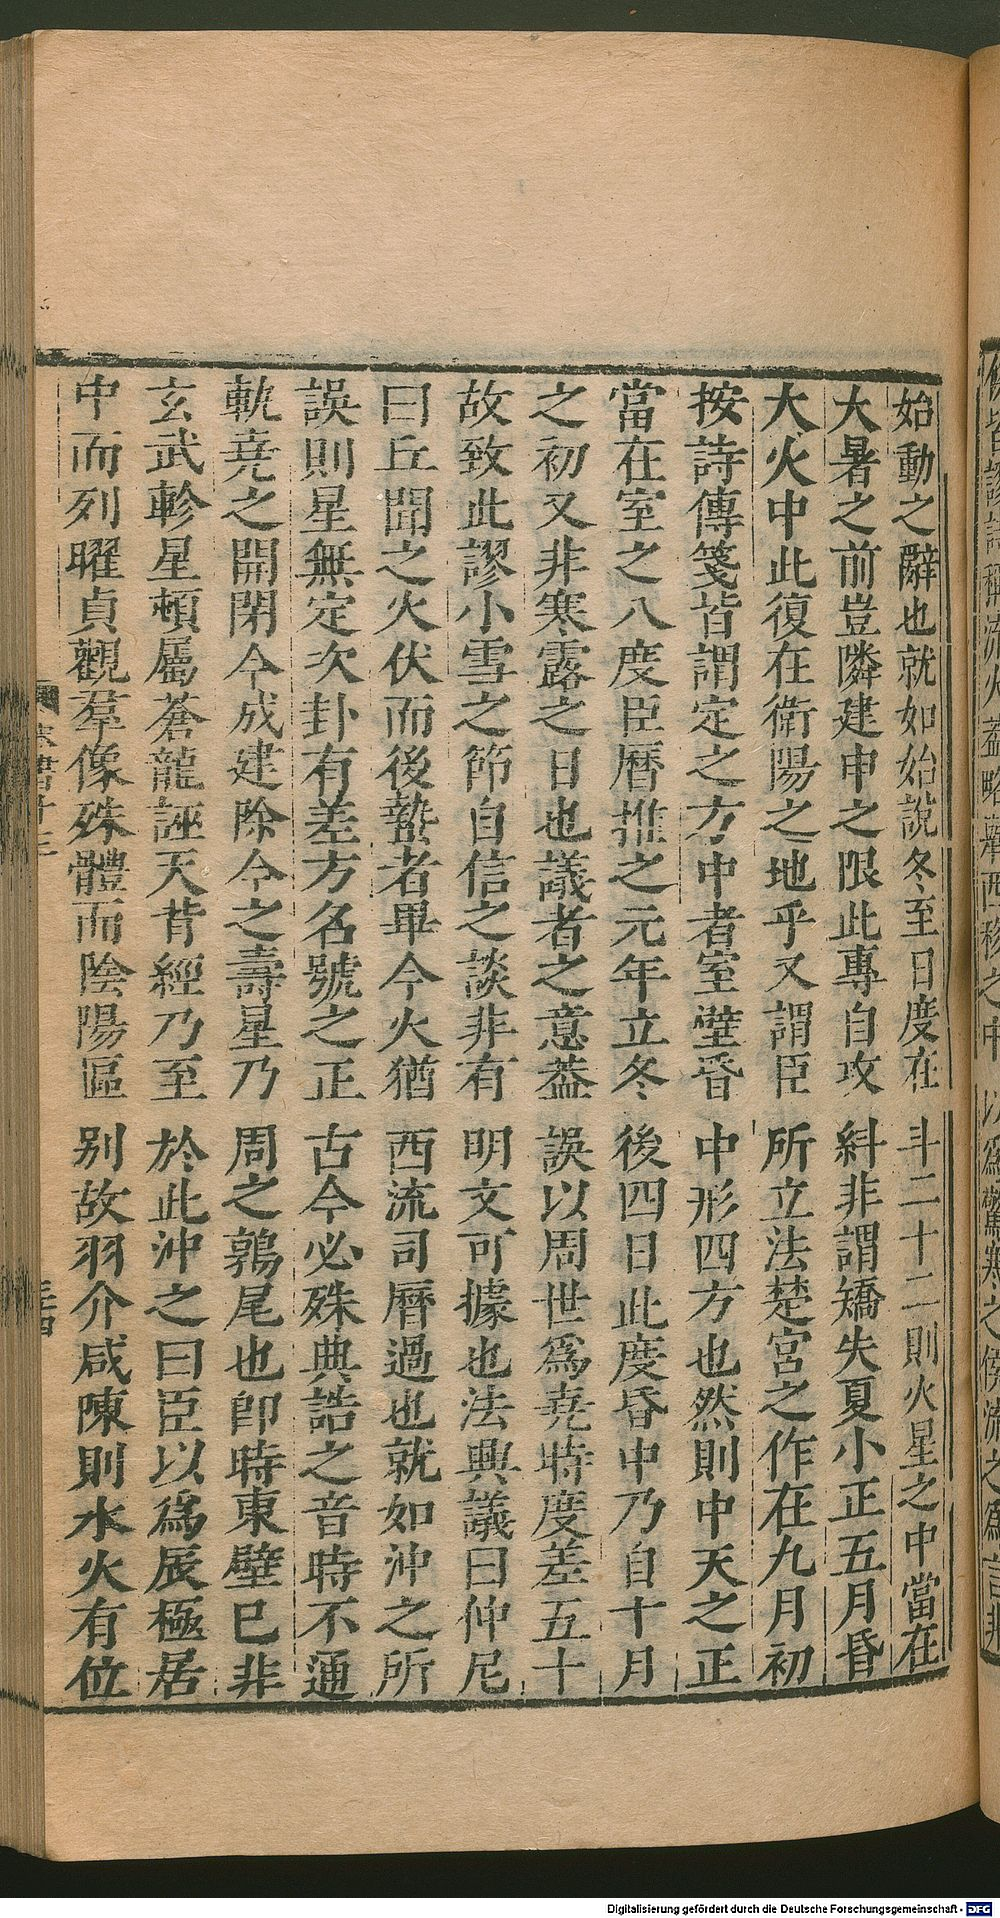 始動之辭也就如始說冬至日度在斗二十二則火星之中當在
大暑之前豈隣建申之限此專自攻糾非謂矯失夏小正五月昏
大火中此復在衛陽之地乎又謂臣所立法楚宮之作在九月初
按詩傳箋皆謂定之方中者室壁昏中形四方也然則中天之正
當在室之八度臣曆推之元年立冬後四日此度昏中乃自十月
之初又非寒露之日也議者之意蓋誤以周世爲堯時度差五十
故致此謬小雪之節自信之談非有明文可據也法興議曰仲尼
曰丘聞之火伏而後蟄者畢今火猶西流司曆過也就如沖之所
誤則星無定次卦有差方名號之正古今必殊典誥之音時不通
軌堯之開閉今成建除今之壽星乃周之鶉尾也卽時東壁已非
玄武軫星頓屬蒼龍誣天背經乃至於此沖之曰臣以爲辰極居
中而列曜貞觀羣像殊體而陰陽區别故羽介咸陳則水火有位
宋書十三
三十四
Digitalisierung gefördert durch die Deutsche Forschungsgemeinschaft - DFG